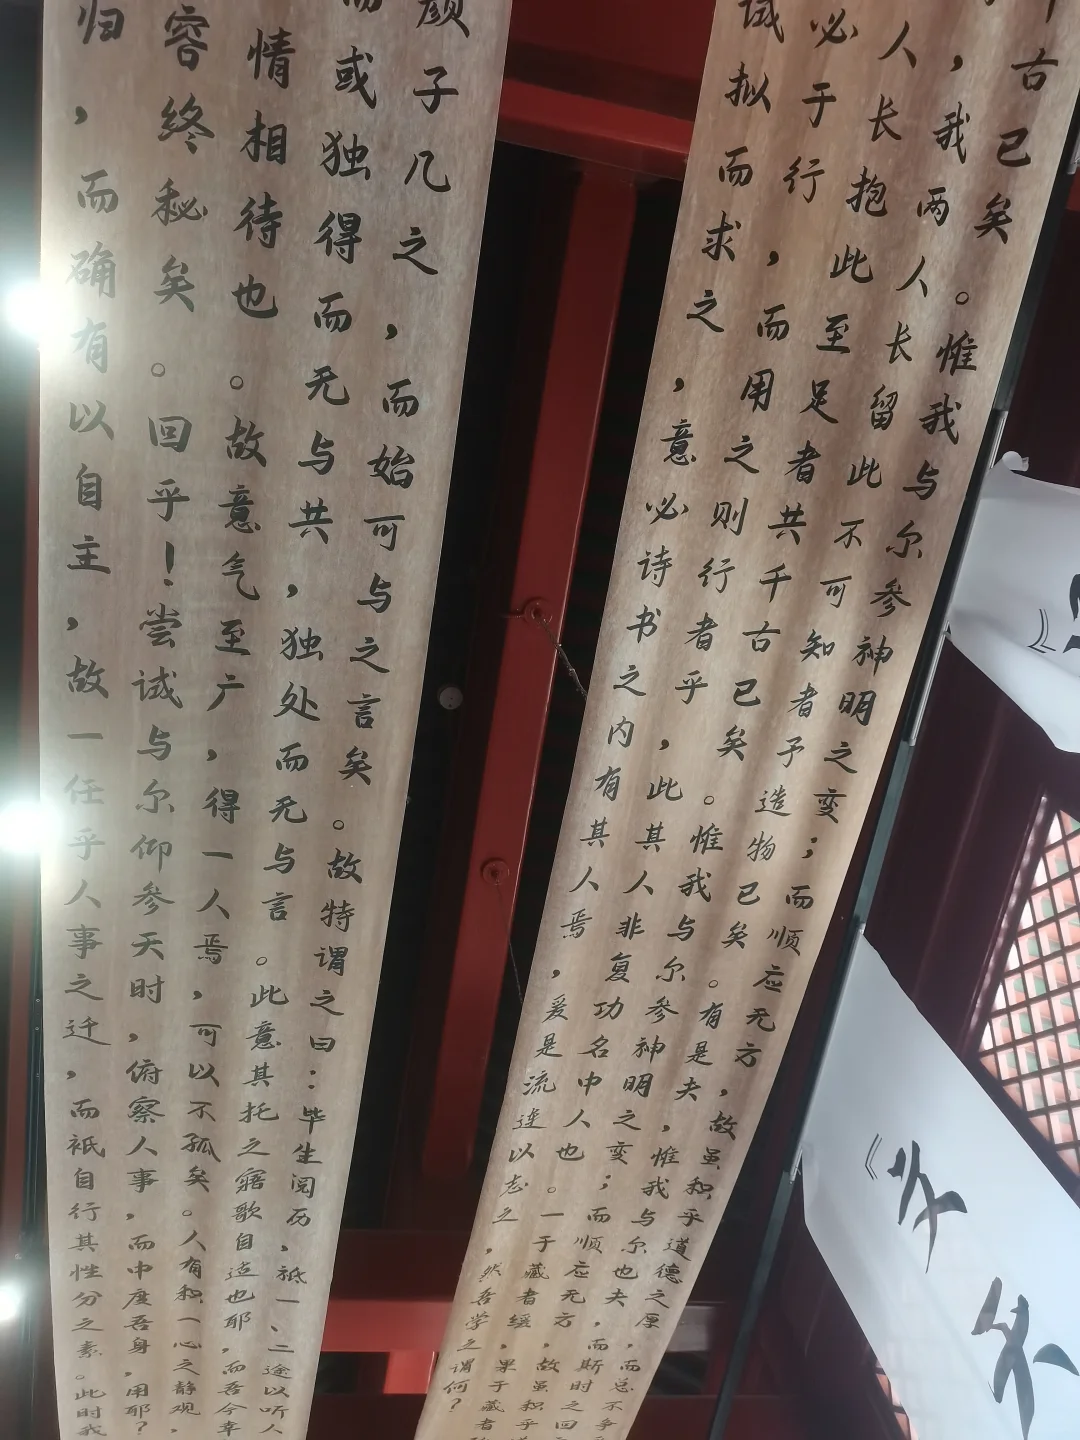 古已矣。惟我与尔参神明之变;而顺应无方,故虽积乎道德之厚,而总不争
,我两人长留此不可知者予造物已矣。有是夫,惟我与尔也夫,而斯时之回
人长抱此至足者共千古已矣。惟我与尔参神明之变;而顺应无方,故虽积乎
必于行,而用之则行者乎,此其人非复功名中人也。一于藏者缓,果于藏者
试拟而求之,意必诗书之内有其人焉,爰是流连以志之,然吾学之谓何?
颜子几之,而始可与之言矣。故特谓之曰:毕生阅历,祗一、二途以听人
而或独得而无与共,独处而无与言。此意其托之寤歌自适也耶,而吾今幸
情相待也。故意气至广,得一人焉,可以不孤矣。人有积一心之静观,
容终秘矣。回乎!尝试与尔仰参天时,俯察人事,而中度吾身,用耶?
归,而确有以自主,故一任乎人事之迁,而祗自行其性分之素。此时我